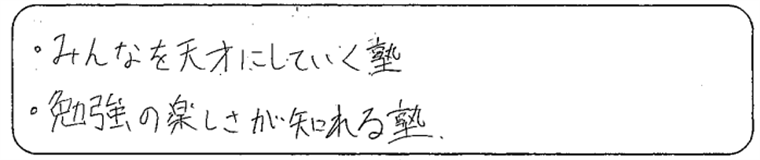 ・みんなを天才にしていく塾
・勉強の楽しさが知れる塾.